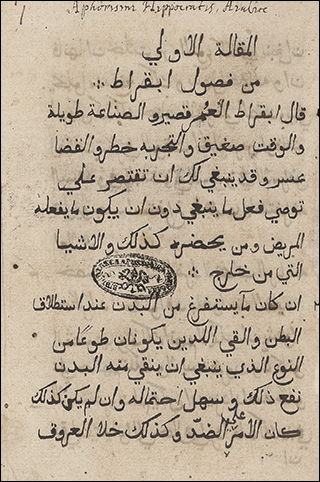 Aphorismi Hippocratis, Arabice
المقالة الاولي
من فصول ابقراط
قال ابقراط العمر قصير و الصناعة طويلة
والوقت ضيق والتجربه خطر و القضا
عسر و قد ينبغي لك ان تقتصر علي
توخي فعل ما ينبغي دون ان يكون ما يفعله
المريض و من يحضره كذلك و الاشيا
التي من خارج
ان كان ما يستفرغ من البدن عند استطلاق
البطن و القي اللدين يكونان طوعا من
النوع الذي ينبغي ان ينقي منه البدن
نفع ذلك و سهل احتماله و ان لم يكن كذلك
كان الامر علي الضد و كذلك خلا العروق